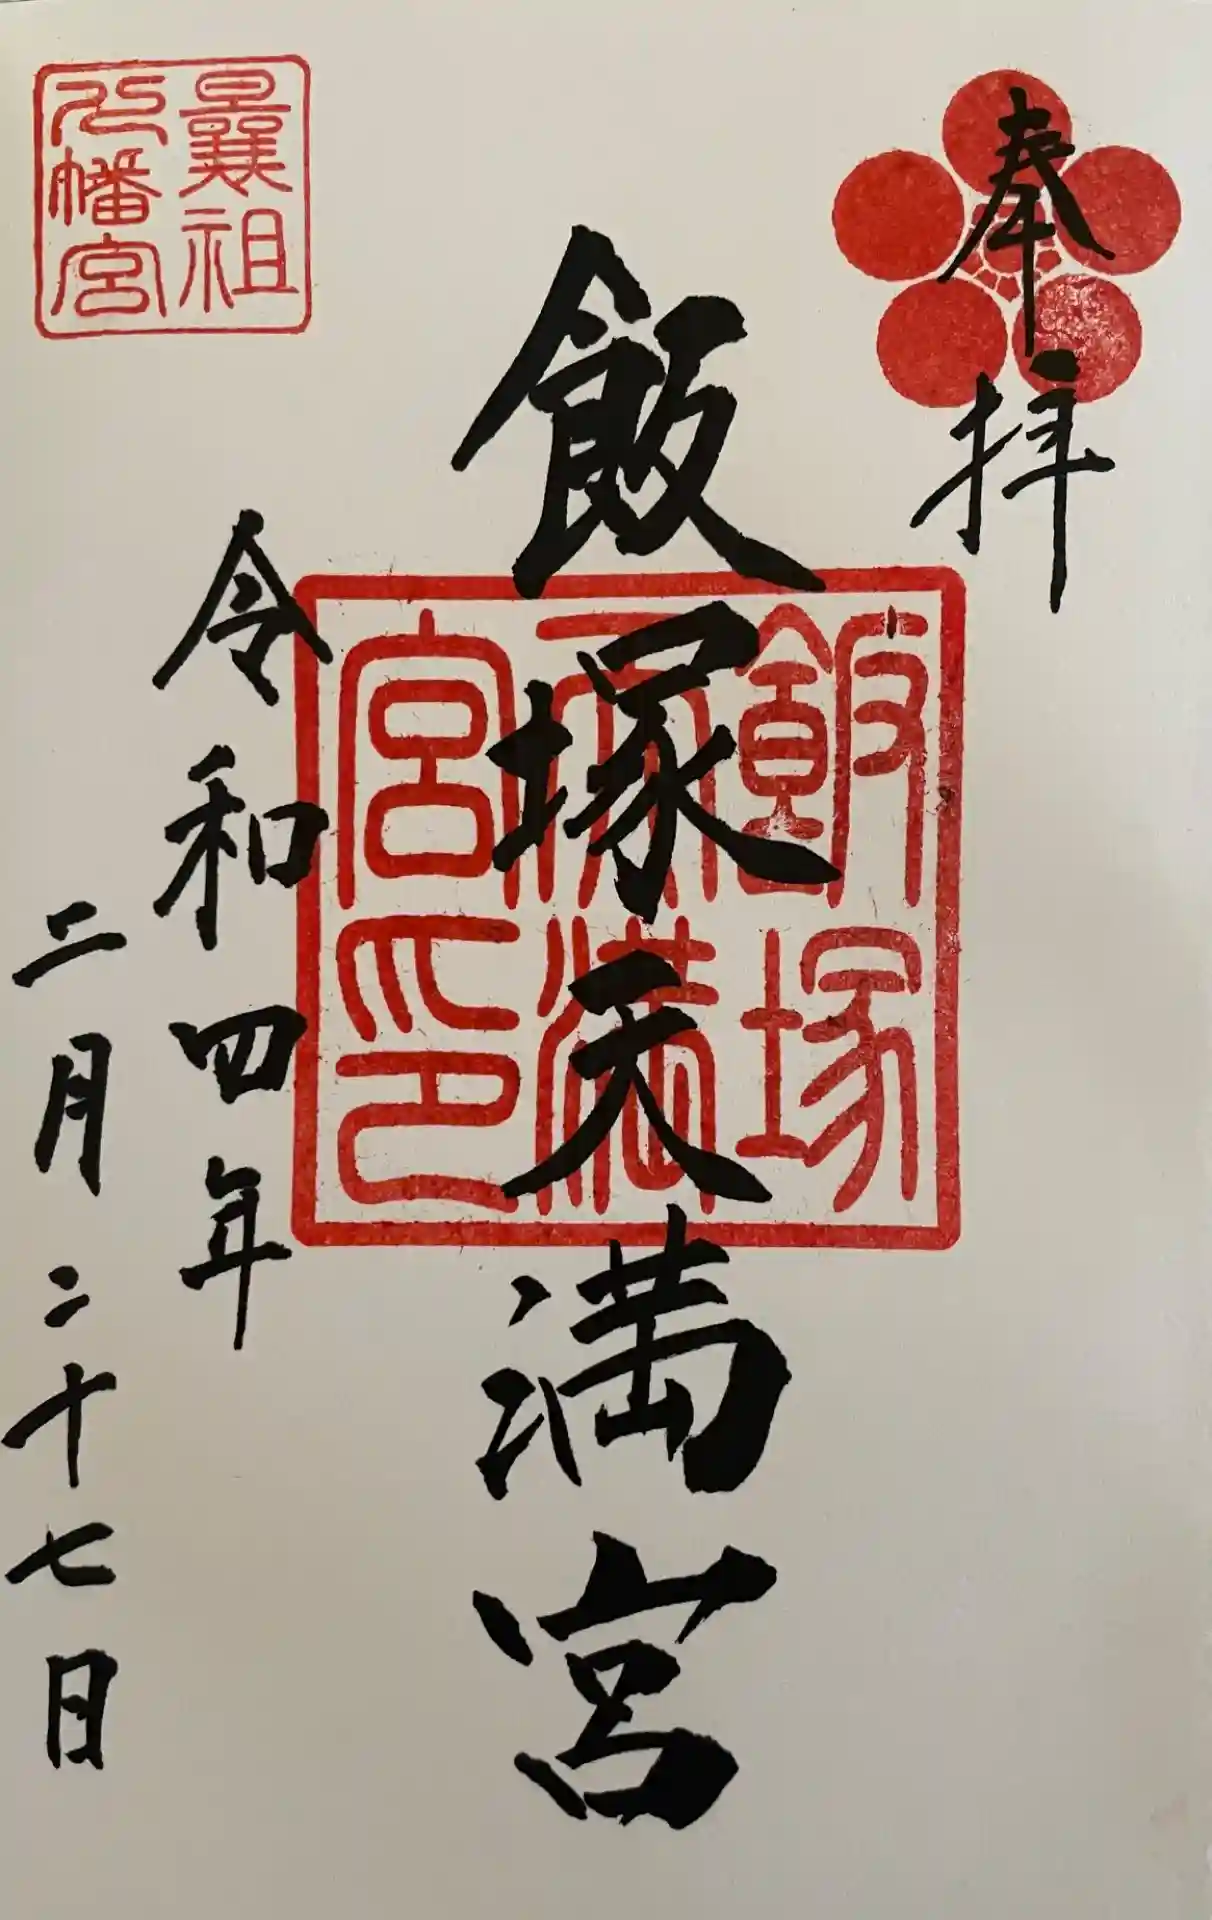 奉拝
飯塚天満宮
飯塚
天満
宮印
令和四年
二月二十七日
曩祖
八幡宮